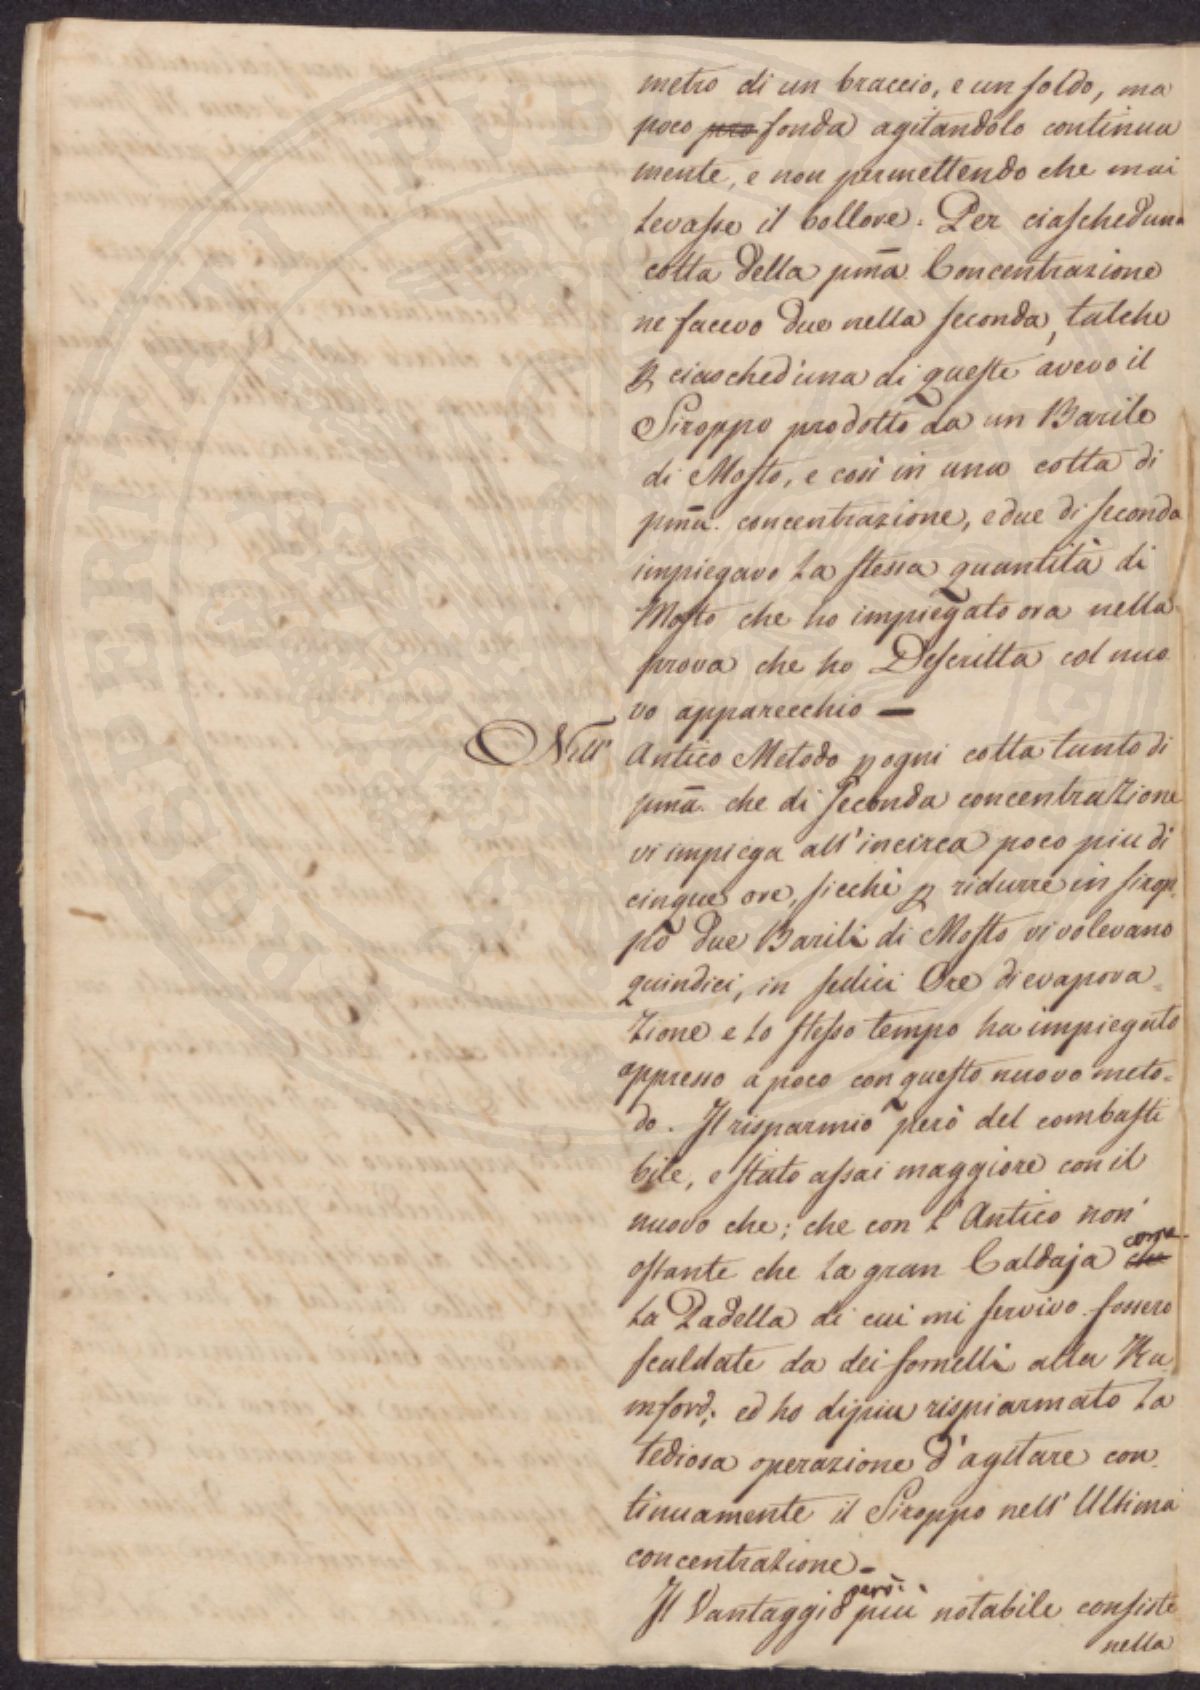 metro di un braccio, e un soldo, ma
poco pro fonda agitandolo continua
mente, e non permettendo che mai
levasse il bollore. Per ciascheduna
cotta della pma. Concentrazione
ne facevo due nella seconda, talche
p ciasched'una di queste avevo il
Siroppo prodotto da un Barile
di Mosto, e così in una cotta di
pma. concentrazione, e due di seconda
impiegavo la stessa quantità di
Mosto che ho impiegato ora nella
prova che ho Descritta col nuo
vo apparecchio —
Nell' Antico Metodo p ogni cotta tanto di
pma. che di seconda concentrazione
vi impiega all'incirca poco piu di
cinque ore, sicchè p ridurre in sirop
po due Barili di Mosto vi volevano
quindici, in sedici Ore di evapora=
zione e lo stesso tempo ha impiegato
appresso a poco con questo nuovo meto=
do. Il risparmio però del combusti
bile, e stato assai maggiore con il
nuovo che; che con l'Antico non
ostante che la gran Caldaja che come
la Padella di cui mi servivo fossero
scaldate da dei fornelli alla Ru
mford; ed ho dipiu rispiarmato la
tediosa operazione d'agitare con
tinuamente il Siroppo nell'Ultima
concentrazione =
Il Vantaggio però più notabile consiste
nella
POSPERITATI PUB